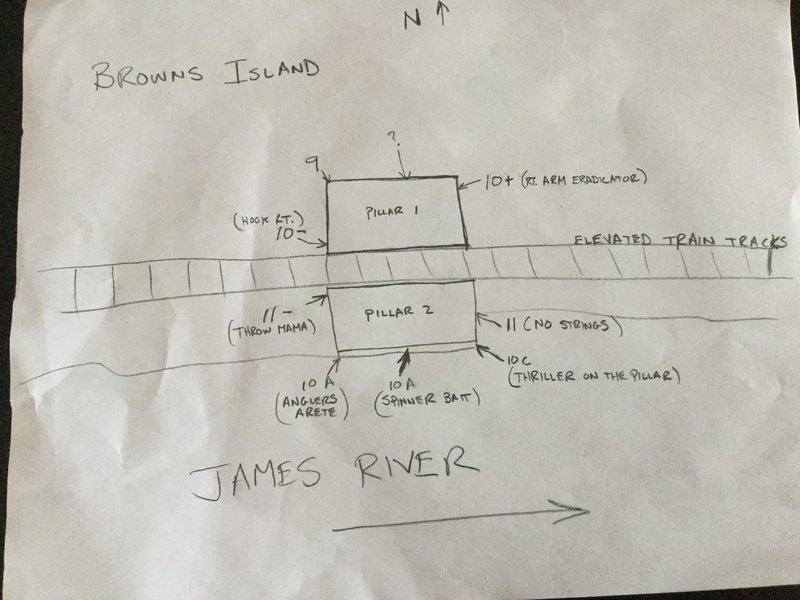 N
BROWNS ISLAND
?
9
10+ (RT. ARM ERADICATOR)
PILLAR 1
(HOOK RT.)
10-
ELEVATED TRAIN TRACKS
11-
(THROW MAMA)
PILLAR 2
11 (NO STRINGS)
10 A
(ANGLERS
ARETE)
10A
(SPINNER BAIT)
10C
(THRILLER ON THE PILLAR)
JAMES RIVER